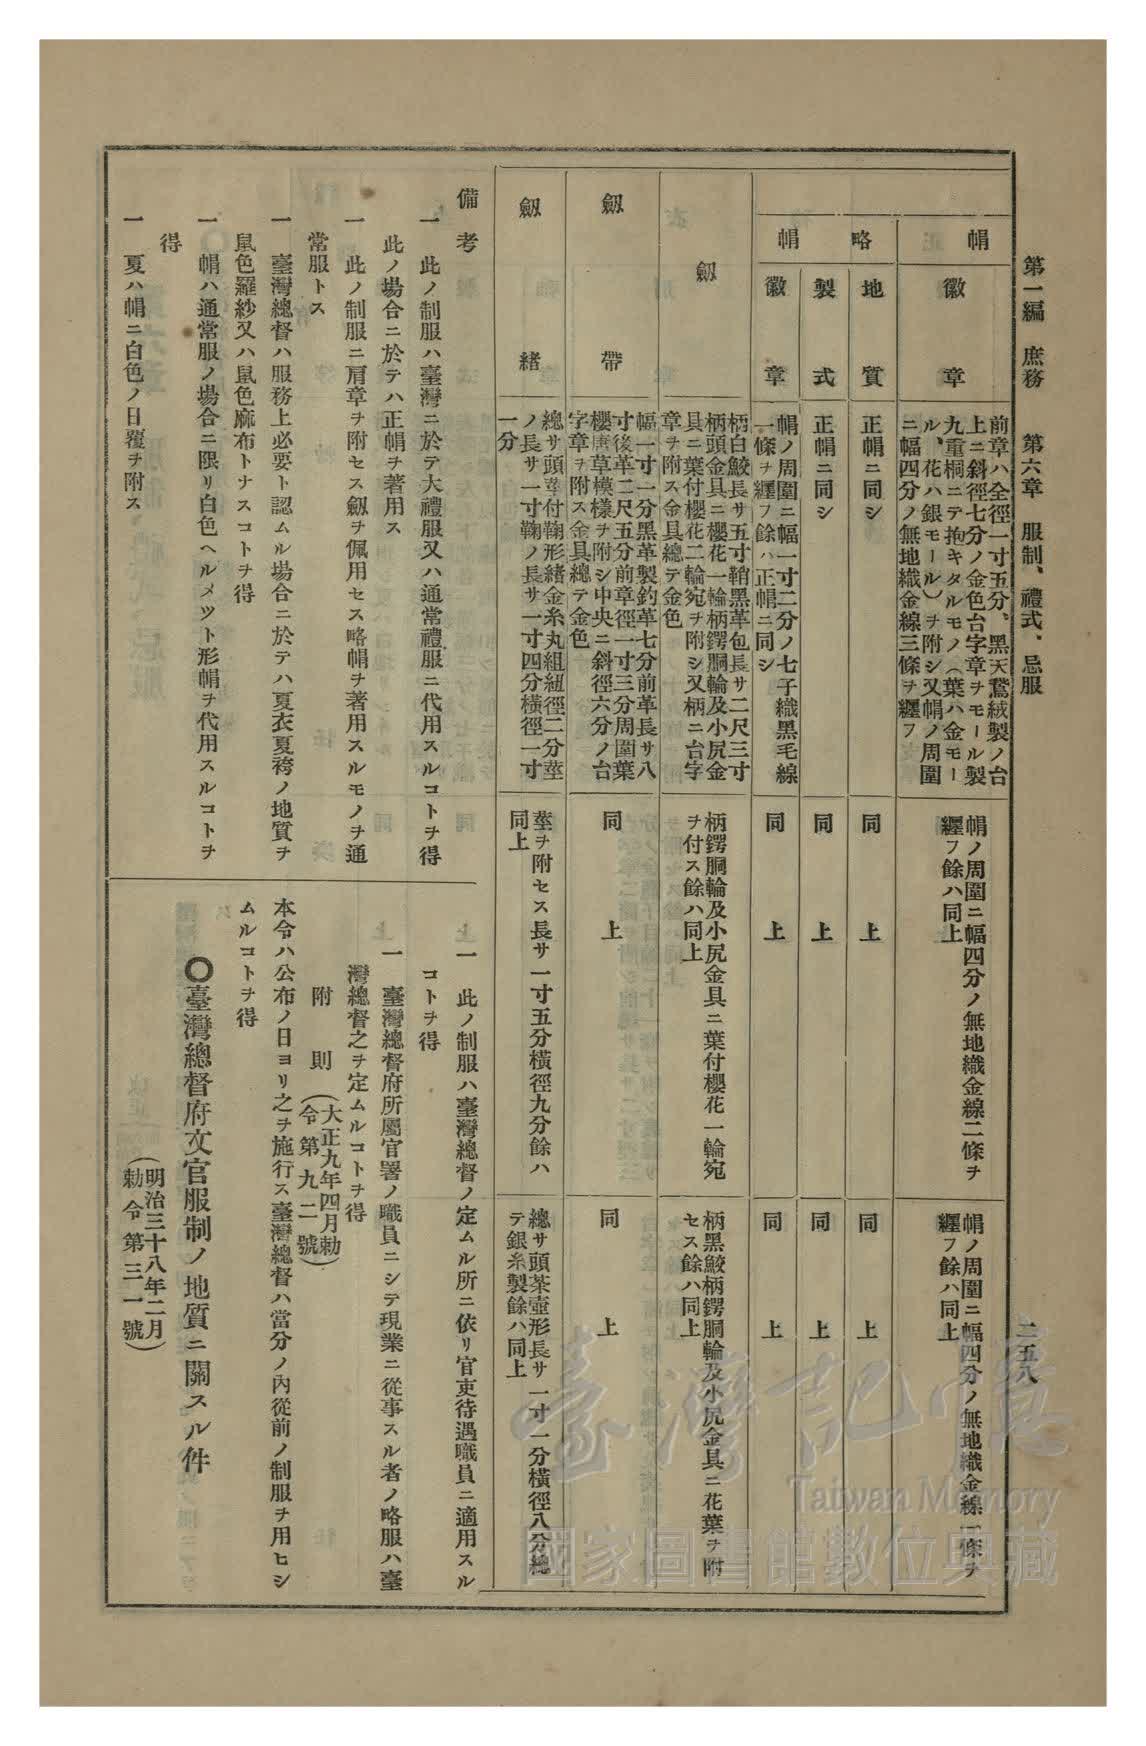 第一編 庶務 第六章 服制、禮式、忌服
二五八
帽
徽章
前章ハ全徑一寸五分、黑天鵞絨製ノ台
上ニ斜徑七分ノ金色台字章ヲモール製
九重桐ニテ抱キタルモノ（葉ハ金モー
ル、花ハ銀モール）ヲ附シ又帽ノ周圍
ニ幅四分ノ無地織金線三條ヲ纒フ
帽ノ周圍ニ幅四分ノ無地織金線二條ヲ
纒フ餘ハ同上
帽ノ周圍ニ幅四分ノ無地織金線一條ヲ
纒フ餘ハ同上
略帽
地質
正帽ニ同シ
同上
同上
製式
正帽ニ同シ
同上
同上
徽章
帽ノ周圍ニ幅一寸二分ノ七子織黑毛線
一條ヲ纒フ餘ハ正帽ニ同シ
同上
同上
劔
柄白鮫長サ五寸鞘黑革包長サ二尺三寸
柄頭金具ニ櫻花一輪柄鍔胴輪及小尻金
具ニ葉付櫻花二輪宛ヲ附シ又柄ニ台字
章ヲ附ス金具總テ金色
柄鍔胴輪及小尻金具ニ葉付櫻花一輪宛
ヲ付ス餘ハ同上
柄黑鮫柄鍔胴輪及小尻金具ニ花葉ヲ附
セス餘ハ同上
劔帶
幅一寸一分黑革製釣革七分前革長サ八
寸後革二尺五分前章徑一寸三分周圍葉
櫻唐草模樣ヲ附シ中央ニ斜徑六分ノ台
字章ヲ附ス金具總テ金色
同上
同上
劔緖
總サ頭蕚付鞠形緖金糸丸組紐徑二分莖
ノ長サ一寸鞠ノ長サ一寸四分橫徑一寸
一分
莖ヲ附セス長サ一寸五分橫徑九分餘ハ
同上
總サ頭茶壺形長サ一寸一分橫徑八分總
テ銀糸製餘ハ同上
備考
一 此ノ制服ハ臺灣ニ於テ大禮服又ハ通常禮服ニ代用スルコトヲ得
此ノ場合ニ於テハ正帽ヲ著用ス
一 此ノ制服ニ肩章ヲ附セス劔ヲ佩用セス略帽ヲ著用スルモノヲ通
常服トス
一 臺灣總督ハ服務上必要ト認ムル場合ニ於テハ夏衣夏袴ノ地質ヲ
鼠色羅紗又ハ鼠色麻布トナスコトヲ得
一 帽ハ通常服ノ場合ニ限リ白色ヘルメツト形帽ヲ代用スルコトヲ
得
一 夏ハ帽ニ白色ノ日覆ヲ附ス
一 此ノ制服ハ臺灣總督ノ定ムル所ニ依リ官吏待遇職員ニ適用スル
コトヲ得
一 臺灣總督府所屬官署ノ職員ニシテ現業ニ從事スル者ノ略服ハ臺
灣總督之ヲ定ムルコトヲ得
附則 （大正九年四月勅
令第九二號）
本令ハ公布ノ日ヨリ之ヲ施行ス臺灣總督ハ當分ノ內從前ノ制服ヲ用ヒシ
ムルコトヲ得
〇臺灣總督府文官服制ノ地質ニ關スル件
（明治三十八年二月
勅令第三一號）
臺灣記憶
Taiwan Memory
國家圖書館數位典藏